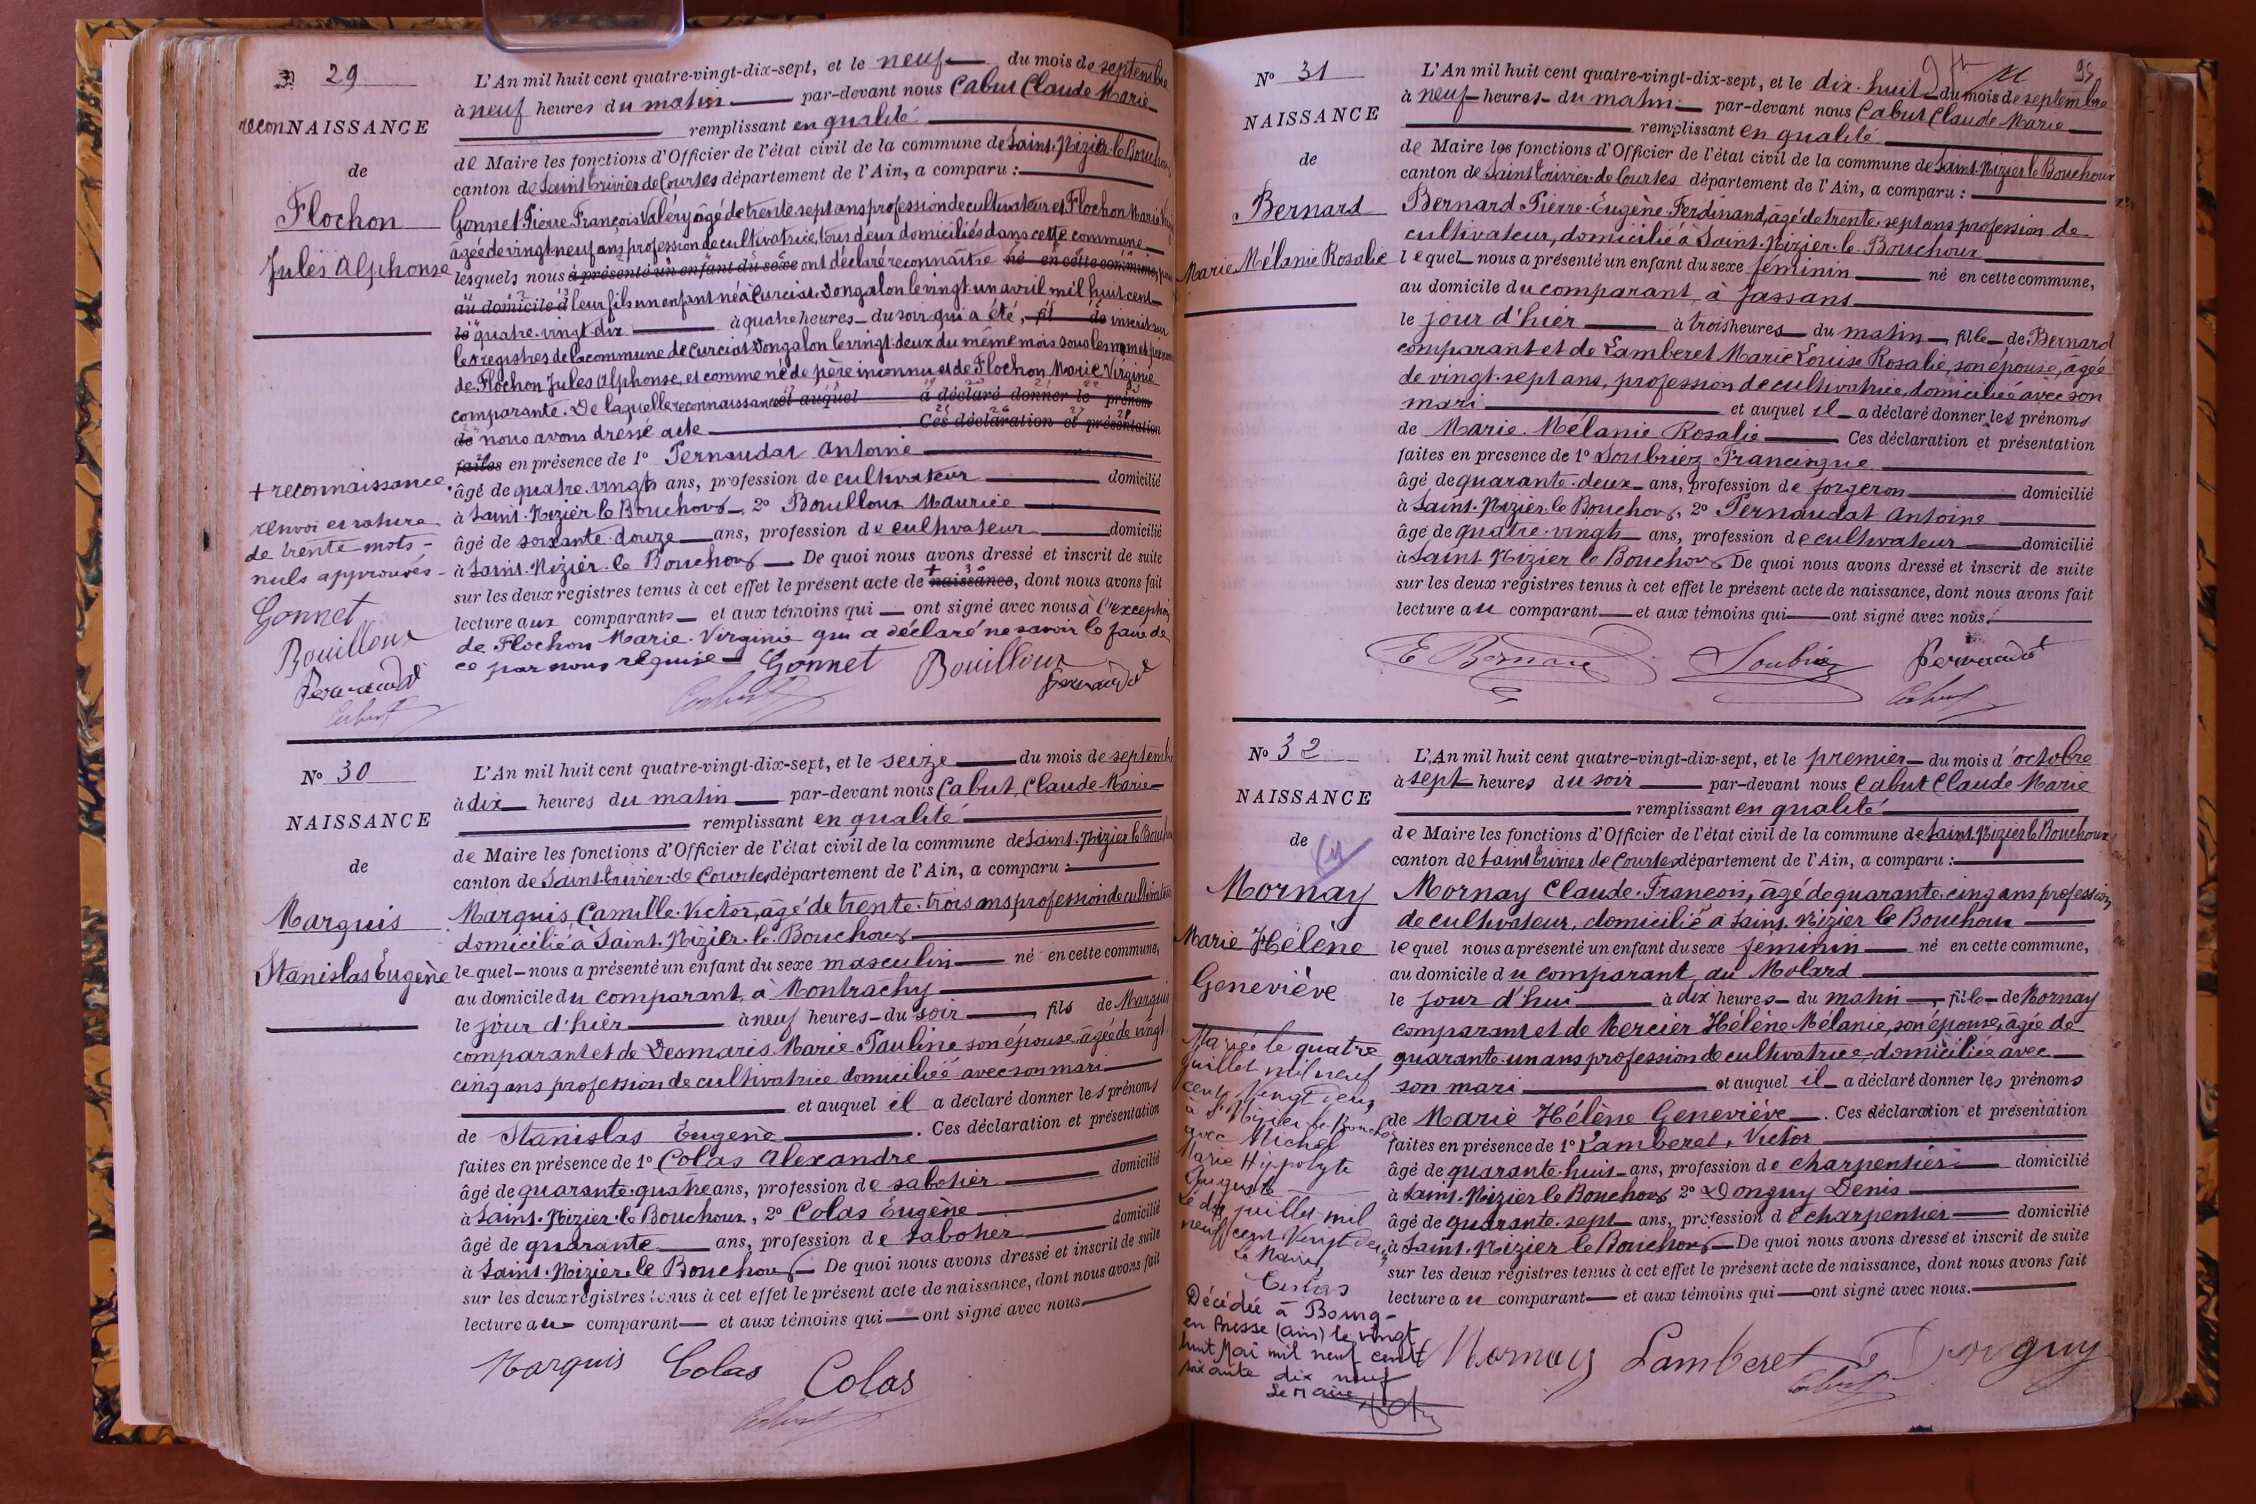 29
reconNAISSANCE
de
Flochon
Jules Alphonse
L'An mil huit cent quatre-vingt-dix-sept, et le neuf du mois de septembre
à neuf heures du matin par-devant nous Cabut Claude Marie
remplissant en qualité
de Maire les fonctions d'Officier de l'état civil de la commune de Saint-Nizier-le-Bouchoux
canton de Saint Trivier de Courtes département de l'Ain, a comparu :
Gonnet Pierre François Valéry âgé de trente-sept ans profession de cultivateur et Flochon Marie
âgée de vingt neuf ans profession de cultivatrice, tous deux domiciliés dans cette commune
lesquels nous a présenté un enfant du sexe ont déclaré reconnaître né en cette commune, pour
au domicile d leur fils un enfant né à Curciat-Dongalon le vingt-un avril mil huit cent
le quatre-vingt-dix à quatre heures du soir qui a été, fil de inscrit sur
les registres de la commune de Curciat Dongalon le vingt-deux du même mois sous les nom et prénoms
de Flochon Jules Alphonse, et comme né de père inconnu et de Flochon Marie Virginie
comparante. De laquelle reconnaissance et auquel a déclaré donner le prénom
de nous avons dressé acte Ces déclaration et présentation
faites en présence de 1º Pernaudat Antoine
âgé de quatre-vingts ans, profession de cultivateur domicilié
à Saint-Nizier le Bouchoux, 2º Bouilloux Maurice
âgé de soixante-douze ans, profession de cultivateur domicilié
à Saint-Nizier-le Bouchoux De quoi nous avons dressé et inscrit de suite
sur les deux registres tenus à cet effet le présent acte de + naissance, dont nous avons fait
lecture aux comparants et aux témoins qui ont signé avec nous à l'exception
de Flochon Marie-Virginie qui a déclaré ne savoir le faire de
ce par nous requise Gonnet Bouilloux Pernaudat
Cabut
+ reconnaissance.
renvoi et rature
de trente mots
nuls approuvés
Gonnet
Bouilloux
Pernaudat
Cabut
Nº 30
NAISSANCE
de
Marquis
Stanislas Eugène
L'An mil huit cent quatre-vingt-dix-sept, et le seize du mois de septembre
à dix heures du matin par-devant nous Cabut Claude Marie
remplissant en qualité
de Maire les fonctions d'Officier de l'état civil de la commune de Saint-Nizier le Bouchoux
canton de Saint Trivier-de Courtes département de l'Ain, a comparu :
Marquis Camille-Victor, âgé de trente-trois ans profession de cultivateur
domicilié à Saint-Nizier-le-Bouchoux
lequel nous a présenté un enfant du sexe masculin né en cette commune,
au domicile du comparant, à Montrachy
le jour d'hier à neuf heures du soir, fils de Marquis
comparant et de Desmaris Marie Pauline son épouse, âgée de vingt
cinq ans profession de cultivatrice domiciliée avec son mari
et auquel il a déclaré donner les prénoms
de Stanislas Eugène . Ces déclaration et présentation
faites en présence de 1º Colas Alexandre
âgé de quarante-quatre ans, profession de sabotier domicilié
à Saint-Nizier-le Bouchoux, 2º Colas Eugène
âgé de quarante ans, profession de sabotier domicilié
à Saint-Nizier-le Bouchoux De quoi nous avons dressé et inscrit de suite
sur les deux registres tenus à cet effet le présent acte de naissance, dont nous avons fait
lecture au comparant et aux témoins qui ont signé avec nous
Marquis Colas Colas
Cabut
95
Nº 31
NAISSANCE
de
Bernard
Marie Mélanie Rosalie
L'An mil huit cent quatre-vingt-dix-sept, et le dix-huit du mois de septembre
à neuf heures du matin par-devant nous Cabut Claude Marie
remplissant en qualité
de Maire les fonctions d'Officier de l'état civil de la commune de Saint-Nizier le Bouchoux
canton de Saint Trivier-de Courtes département de l'Ain, a comparu :
Bernard Pierre-Eugène-Ferdinand, âgé de trente-sept ans profession de
cultivateur, domicilié à Saint-Nizier-le-Bouchoux
lequel nous a présenté un enfant du sexe féminin né en cette commune,
au domicile du comparant à Jassans
le jour d'hier à trois heures du matin, fille de Bernard
comparant et de Lamberet Marie Louise Rosalie, son épouse, âgée
de vingt-sept ans, profession de cultivatrice, domiciliée avec son
mari et auquel il a déclaré donner les prénoms
de Marie Mélanie Rosalie Ces déclaration et présentation
faites en présence de 1º Soubriez Francisque
âgé de quarante-deux ans, profession de forgeron domicilié
à Saint-Nizier le Bouchoux, 2º Pernaudat Antoine
âgé de quatre-vingts ans, profession de cultivateur domicilié
à Saint Nizier le Bouchoux De quoi nous avons dressé et inscrit de suite
sur les deux registres tenus à cet effet le présent acte de naissance, dont nous avons fait
lecture au comparant et aux témoins qui ont signé avec nous.
E Bernard Soubriez Pernaudat
Cabut
Nº 32
NAISSANCE
de
Mornay
Marie Hélène
Geneviève
L'An mil huit cent quatre-vingt-dix-sept, et le premier du mois d'octobre
à sept heures du soir par-devant nous Cabut Claude Marie
remplissant en qualité
de Maire les fonctions d'Officier de l'état civil de la commune de Saint-Nizier le Bouchoux
canton de Saint Trivier de Courtes département de l'Ain, a comparu :
Mornay Claude-François, âgé de quarante-cinq ans profession
de cultivateur, domicilié à Saint-Nizier le Bouchoux
lequel nous a présenté un enfant du sexe féminin né en cette commune,
au domicile du comparant au Molard
le jour d'hui à dix heures du matin, fille de Mornay
comparant et de Mercier Hélène Mélanie, son épouse, âgée de
quarante-un ans profession de cultivatrice domiciliée avec
son mari et auquel il a déclaré donner les prénoms
de Marie Hélène Geneviève . Ces déclaration et présentation
faites en présence de 1º Lamberet, Victor
âgé de quarante-huit ans, profession de charpentier domicilié
à Saint-Nizier le Bouchoux 2º Donguy Denis
âgé de quarante-sept ans, profession de charpentier domicilié
à Saint-Nizier le Bouchoux De quoi nous avons dressé et inscrit de suite
sur les deux registres tenus à cet effet le présent acte de naissance, dont nous avons fait
lecture au comparant et aux témoins qui ont signé avec nous.
Mornay Lamberet D Donguy
Cabut
Mariée le quatre
juillet mil neuf
cent vingt deux
à St Nizier le Bouchoux
avec Michel
Marie Hippolyte
Auguste
Le dix juillet mil
neuf cent vingt deux
Le Maire,
Décédée à Bourg-
en Bresse (ain) le vingt
huit Mai mil neuf cent
soixante dix neuf
Le Maire